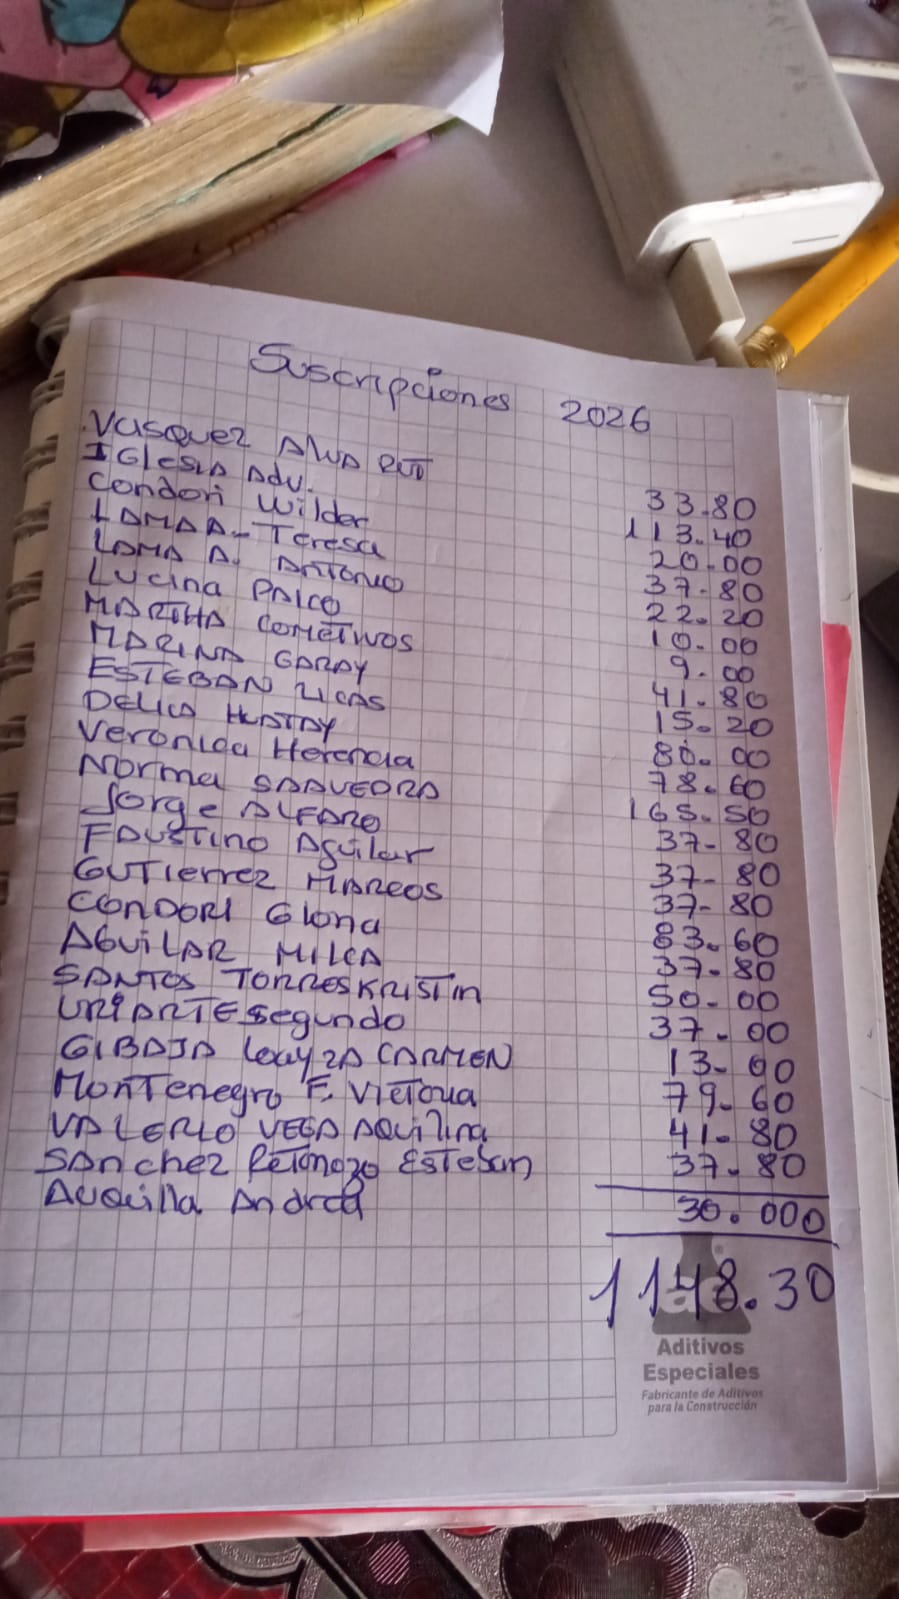 Suscripciones 2026
Vasquez Alva RUT 33.80
IGlesia Adv. 113.40
Condori Wilder 20.00
LAMA A. Teresa 37.80
LAMA A. ANTONIO 22.20
Lucina PAICO 10.00
MARTHA COMETIVOS 9.00
MARINA GARAY 41.80
ESTEBAN LICAS 15.20
DELIA HUATAY 80.00
Veronica Herencia 78.60
Norma SAAVEDRA 165.50
Jorge ALFARO 37-80
FAUSTINO Aguilar 37-80
GUTIERREZ MARCOS 37-80
CONDORI Gloria 83.60
AGUILAR MILCA 37-80
SANTOS TORRES KRISTIN 50-00
URIARTE Segundo 37.00
GIBAJA Loayza CARMEN 13-00
MONTenegro F. Victoria 79-60
VALERIO VEGA AQUILINA 41-80
SANCHEZ Retonozo Esteban 37-80
Auquilla Andrea 30.000
1148.30
ac
Aditivos
Especiales
Fabricante de Aditivos
para la Construcción